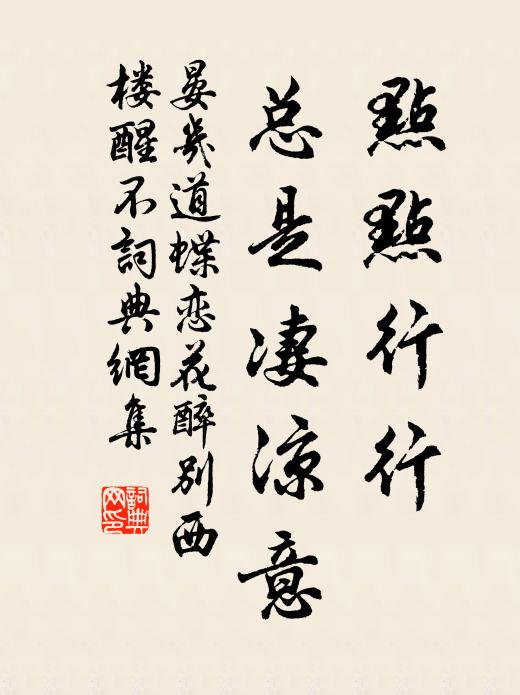 點點行行
总是凄涼意
晏幾道蝶恋花醉別西
楼醒不詞典網集
詞典
网印